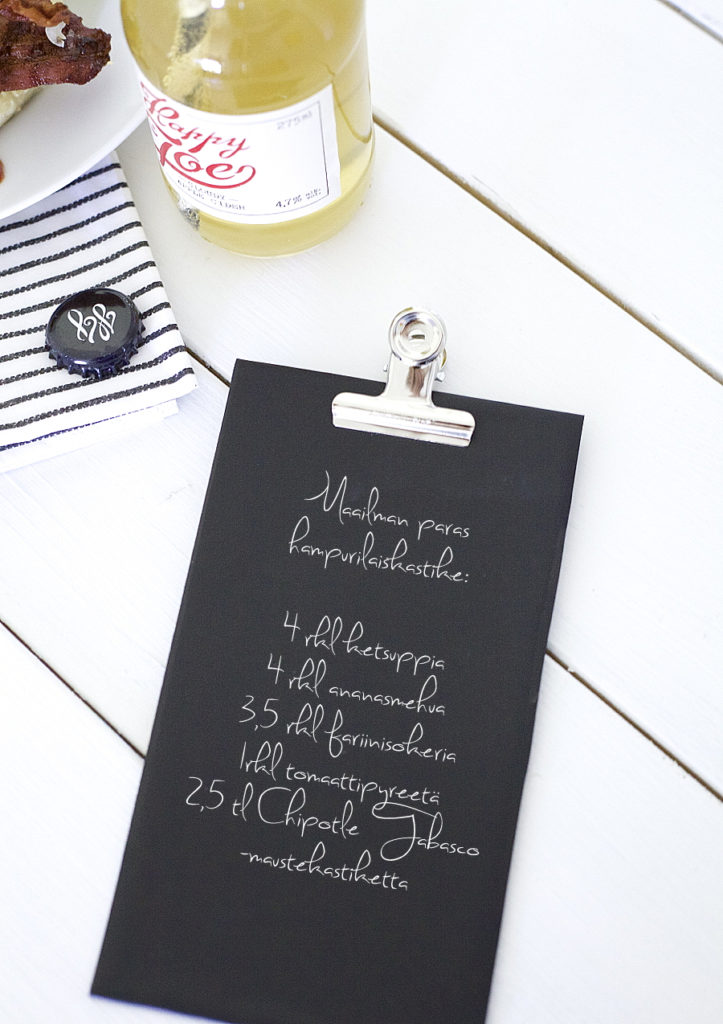 Happy
Joe
275ml
CLOUDY
4.7% vol
Maailman paras
hampurilaiskastike:
4 rkl ketsuppia
4 rkl ananasmehua
3,5 rkl fariinisokeria
1rkl tomaattipyreetä
2,5 tl Chipotle Tabasco
-maustekastiketta